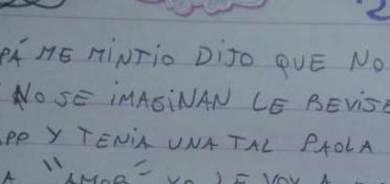 PÁ ME MINTIO DIJO QUE NO
NO SE IMAGINAN LE REVISE
PP Y TENIA UNA TAL PAOLA
A "AMOR" YO LE VOY A